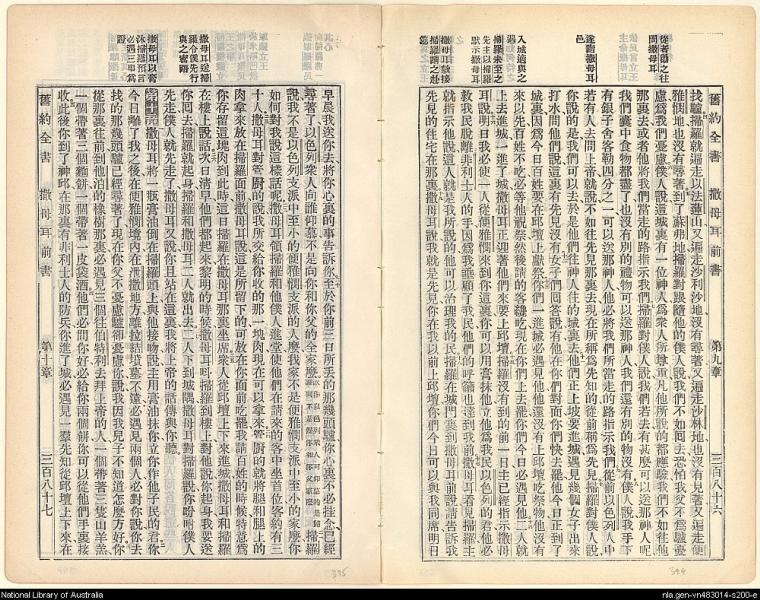 舊約全書 撒母耳前書 第九章 三百八十六
從者勸之往問撒母耳
遂尋撒母耳邑
找驢掃羅就遍走以法蓮山又遍走沙利沙地沒有尋著又遍走沙林地也沒有見著又遍走便
雅憫地也沒有尋著到了蘇弗地掃羅對跟隨他的僕人說我們不如囘去恐怕我父不爲驢憂
慮爲我們憂慮僕人說這城裏有一位神人爲衆人所尊重凡他所說的都應驗我們不如往他
那裏去或者他將我們當走的路指示我們掃羅對僕人說我們若去有甚麼可以送那神人呢
我們囊中食物都盡了也沒有別的禮物可以送那神人我們還有別的物沒有僕人說我手下
有銀子舍客勒四分之一可以送那神人他必將我們所當走的路指示我們從前以色列人中
若有人去問上帝就說不如往先見那裏去現在所稱爲先知的從前稱爲先見掃羅對僕人說
你說的是我們可以去於是他們往神人住的城裏去他們正上坡要進城遇見幾個女子出來
打水問他們說這裏有先見沒有女子們囘答說有他在你們對面你們快去罷他今日正到了
城裏因爲今日百姓要在邱壇上獻祭你們一進城必遇見他他還沒有上邱壇吃祭物他沒有
來以先百姓不吃必等他祝祭然後請的客纔吃現在你們上去罷你們今日必遇見他他二人就
上去進城一進了城撒母耳正迎著他們來要上邱壇掃羅沒有到的前一日主已經指示撒母
耳說明日我必使一人從便雅憫來到你這裏你可以用膏抹他立他爲我民以色列的君他必
救我民脫離非利士人的手因爲我垂顧了我民他們的呼籲也達到我前撒母耳看見掃羅主
就指示他說這人就是我所說的他可以治理我的民掃羅在城門裏到撒母耳前說請告訴我
先見的住宅在那裏撒母耳說我就是先見你在我以前上邱壇你們今日可以與我同席明日
舊約全書 撒母耳前書 第十章 三百八十七
早晨我送你去將你心裏的事告訴你至於你前三日所丟的那幾頭驢你心裏不必挂念已經
尋著了以色列衆人向誰仰慕不是向你和你父的全家麼
掃羅
說我不是以色列支派中至小的便雅憫支派的人麼我家不是便雅憫支派中至小的家麼你
如何對我說這樣話呢撒母耳領掃羅和他僕人進堂使他們在請來的客中坐首位客約有三
十人撒母耳對管廚的說我所交給你收的那一塊肉現在可以拿來管廚的就將腿和腿上的
肉拿來放在掃羅面前撒母耳說這是所留下的可放在你面前吃罷我請百姓的時候特意爲
你存留這塊肉到此時這日掃羅在撒母耳那裏坐席衆人從邱壇上下來進城撒母耳和掃羅
在樓上說話次日清早他們都起來黎明的時候撒母耳呌掃羅到樓上對他說你起身我要送
你囘去掃羅就起身掃羅和撒母耳二人就出去二人下到城隅撒母耳對掃羅說你吩咐僕人
先走僕人就先走了撒母耳又說你且站在這裏我將上帝的話傳與你聽
撒母耳將一瓶膏油倒在掃羅頭上與他接吻說主用膏油抹你立你作他子民的君你
今日離了我之後在便雅憫境內在泄撒地方離拉結墳墓不遠必遇見兩個人必對你說你去
找的那幾頭驢已經尋著了現在你父不憂慮驢卻憂慮你說我因我兒子不知道怎麼方好你
從那裏往前到他泊的橡樹那裏必遇見三個往伯特利去拜上帝的人一個帶著三隻山羊羔
一個帶著三個麵餅一個帶著一皮袋酒他們必問你好必給你兩個餅你可以從他們手裏接
收此後你到了神邱在那裏有非利士人的防兵你進了城必遇見一羣先知從邱壇上下來在
National Library of Australia
nla.gen-vn483014-s200-e